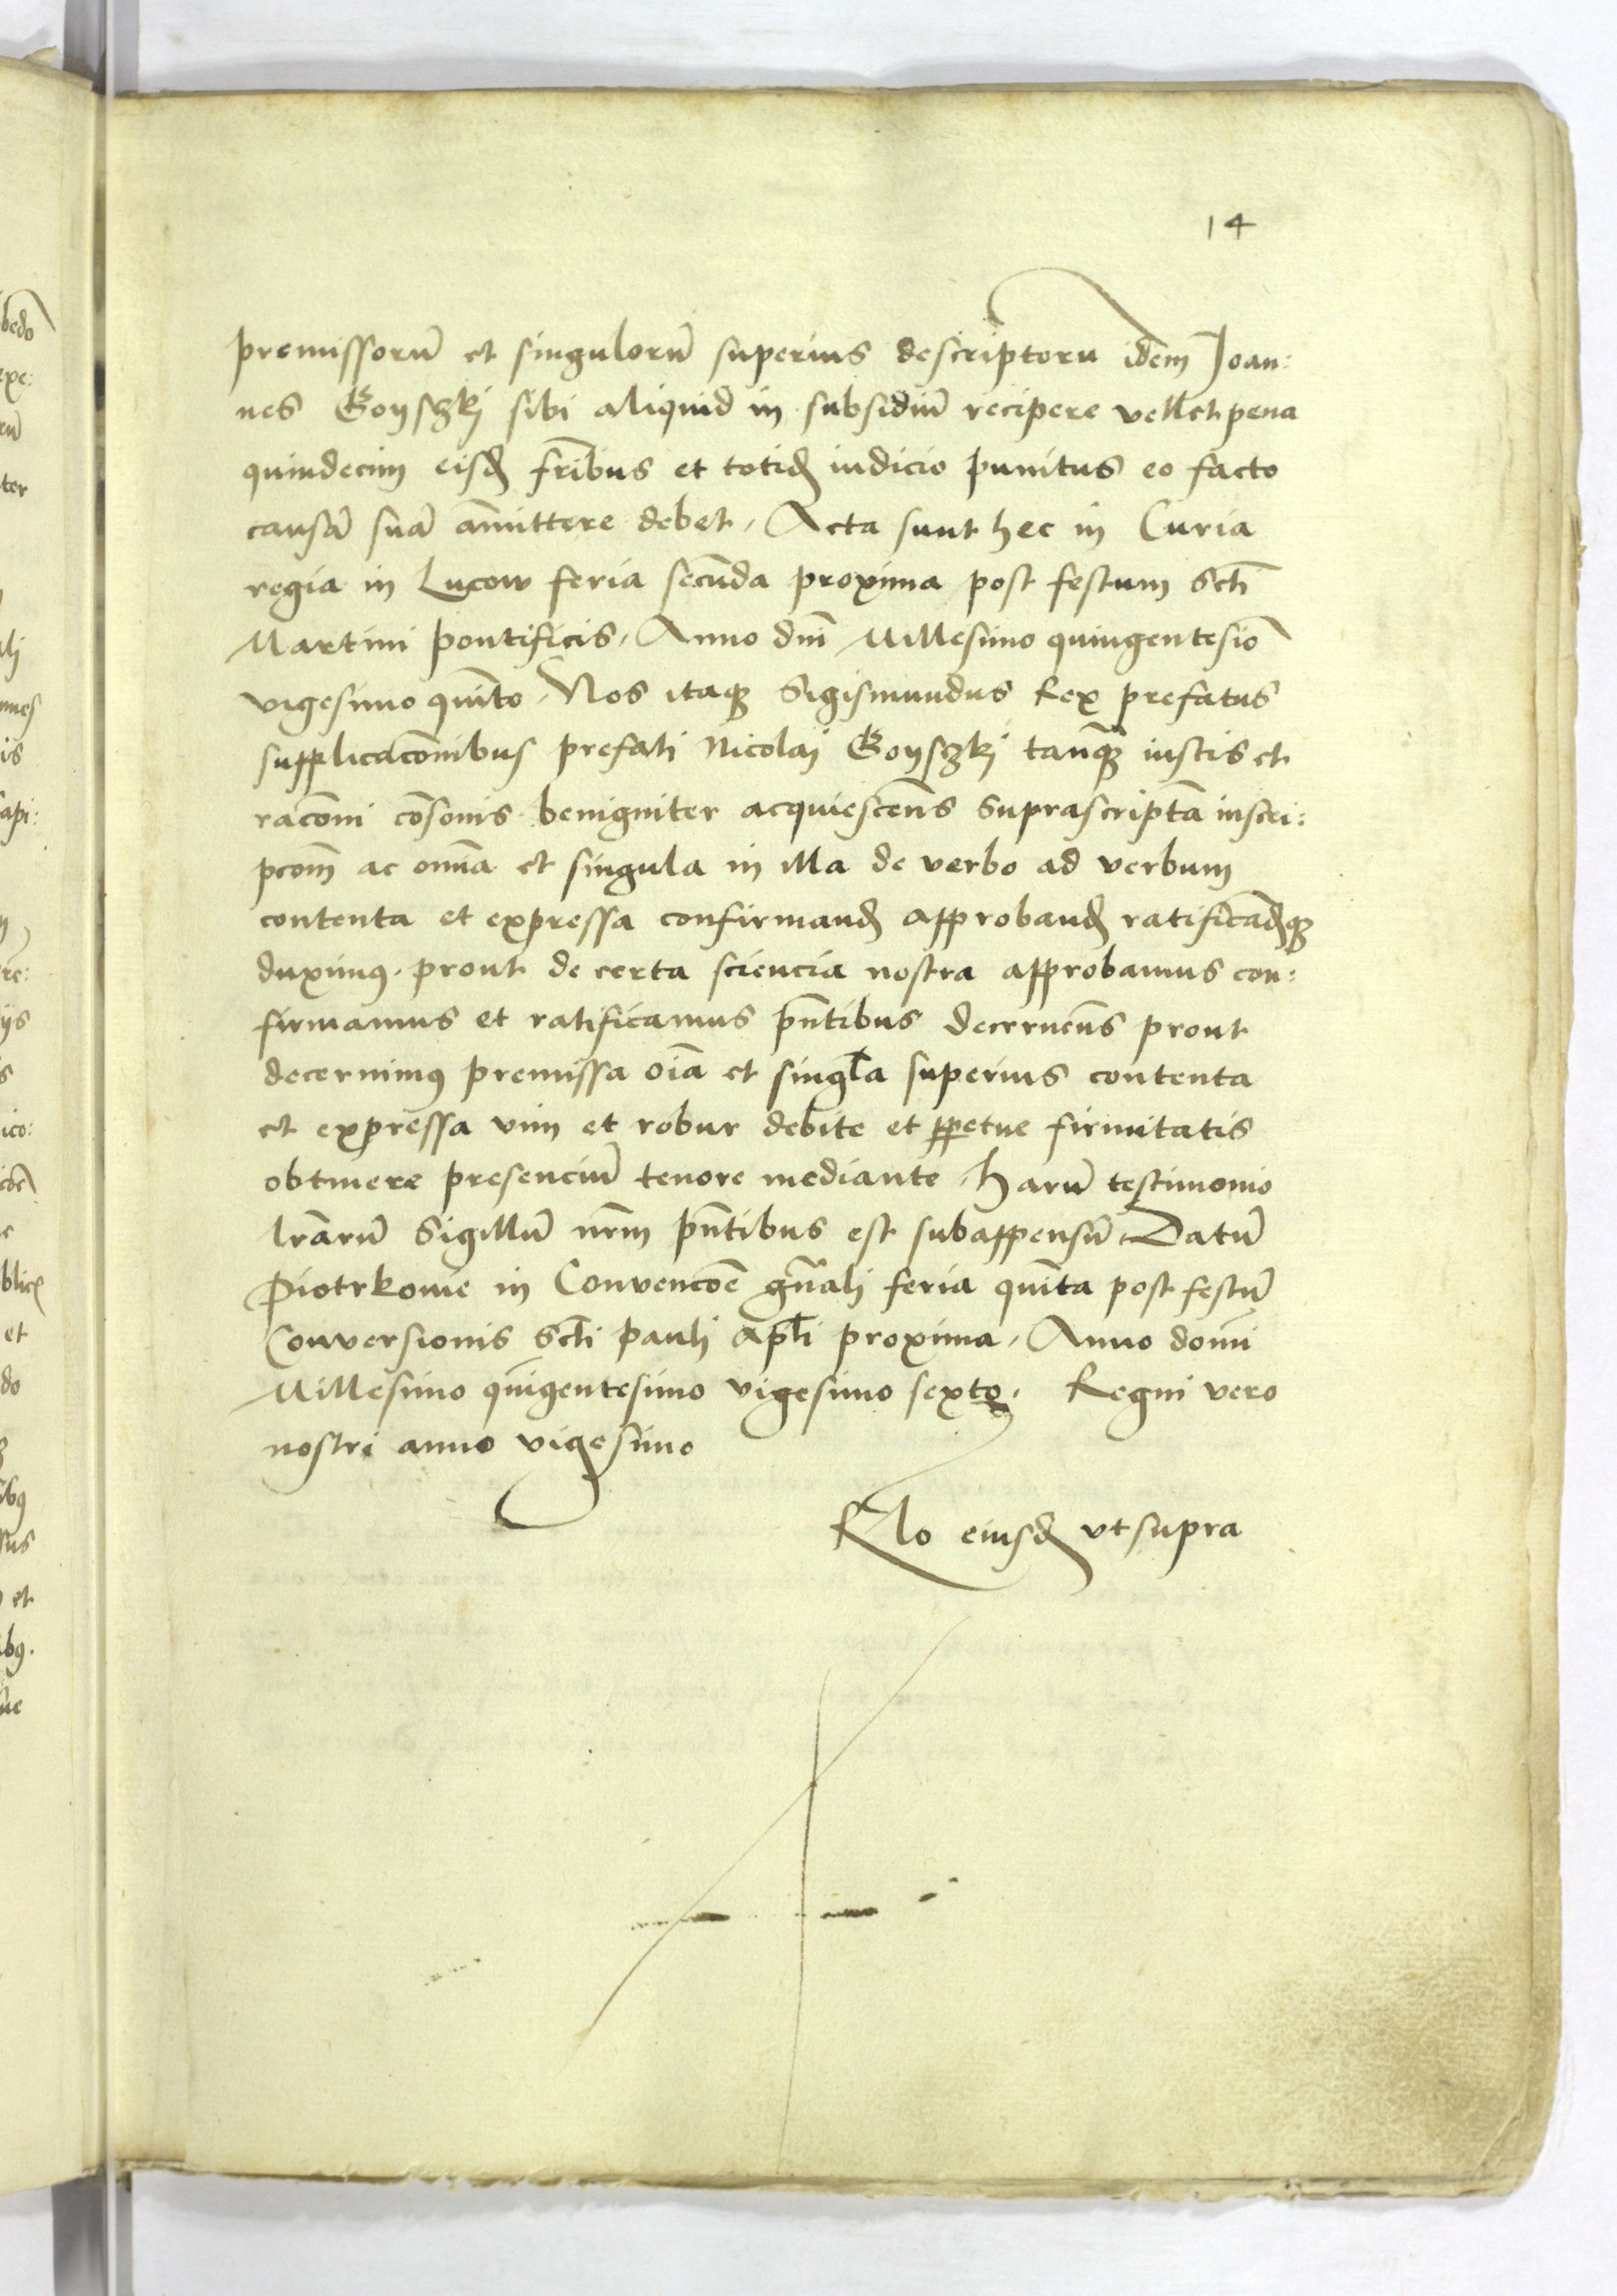 14
premissorū et singulorū superius descriptoru idem Joan:
nes Goyszkj sibi aliquid in subsidiū recipere vellet pena
quindecim eisd fribus et totid iudicio punitus eo facto
causā suā amittere debet, Acta sunt hec in Curia
regia in Lucow feria secūda proxima post festum Scti
Martini pontificis, Anno dni Millesimo quingentesio
vigesimo quīto, Nos itaq Sigismundus Rex prefatus
supplicacōnibus prefati Nicolaj Goyszkj tanq iustis et
racōni cōsonis benigniter acquiescens suprascriptā inscri:
pcom ac omia et singula in illa de verbo ad verbum
contenta et expressa confirmand approband ratificādq
duximꝰ, prout de certa sciencia nostra approbamus con:
firmamus et ratificamus pntibus decernens prout
decernimꝰ premissa oia et singla superius contenta
et expressa vim et robur debite et ppetue firmitatis
obtinere presenciū tenore mediante, harū testimonio
lrarū Sigillū nrm pntibus est subappensū, Datū
Piotrkowie in Convencōe gnali feria quīta post festū
Conversionis Scti Pauli apli proxima, Anno domī
Millesimo quīgentesimo vigesimo sexto, Regni vero
nostri anno vigesimo
Rlo eiusd ut supra